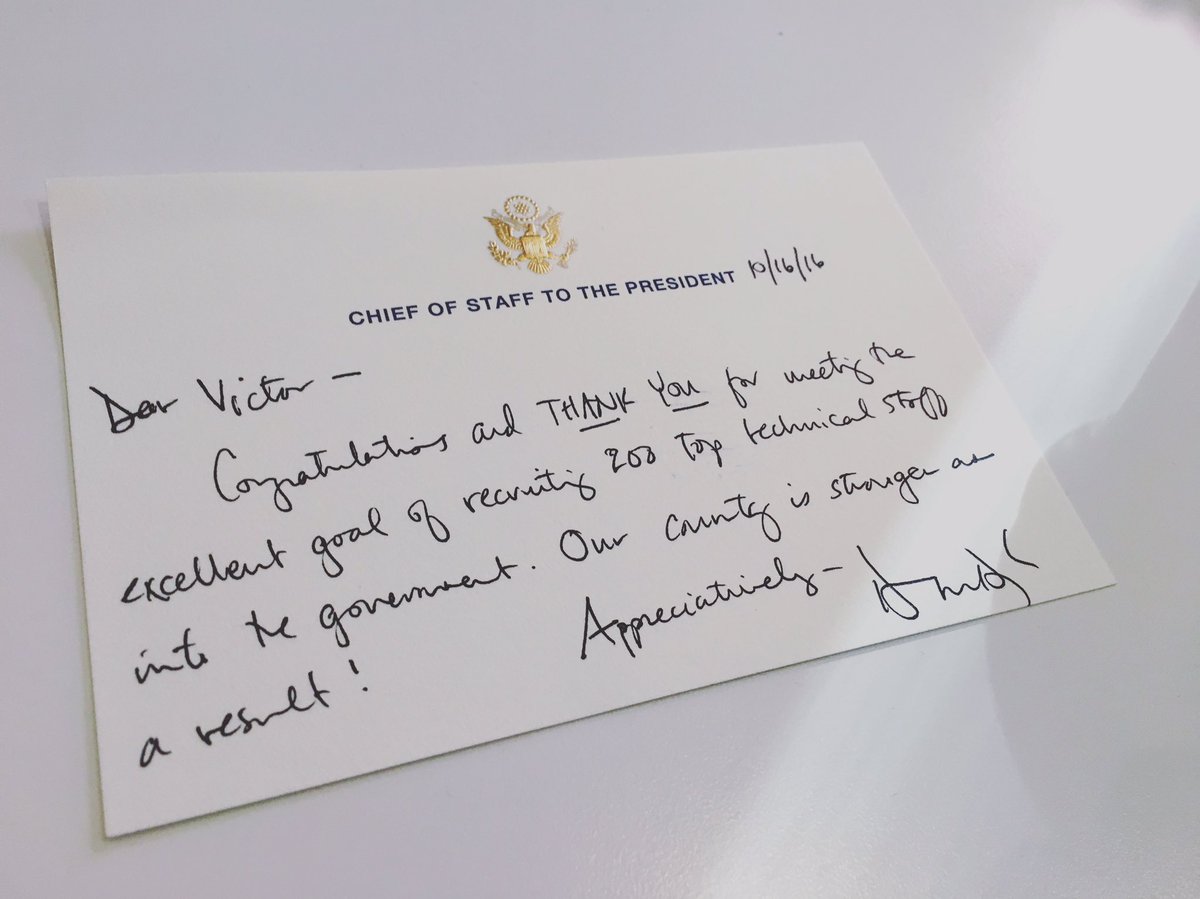 CHIEF OF STAFF TO THE PRESIDENT 10/16/16
Dear Victor —
Congratulations and THANK YOU for meeting the
excellent goal of recruiting 200 top technical staff
into the government. Our country is stronger as
a result!
Appreciatively —